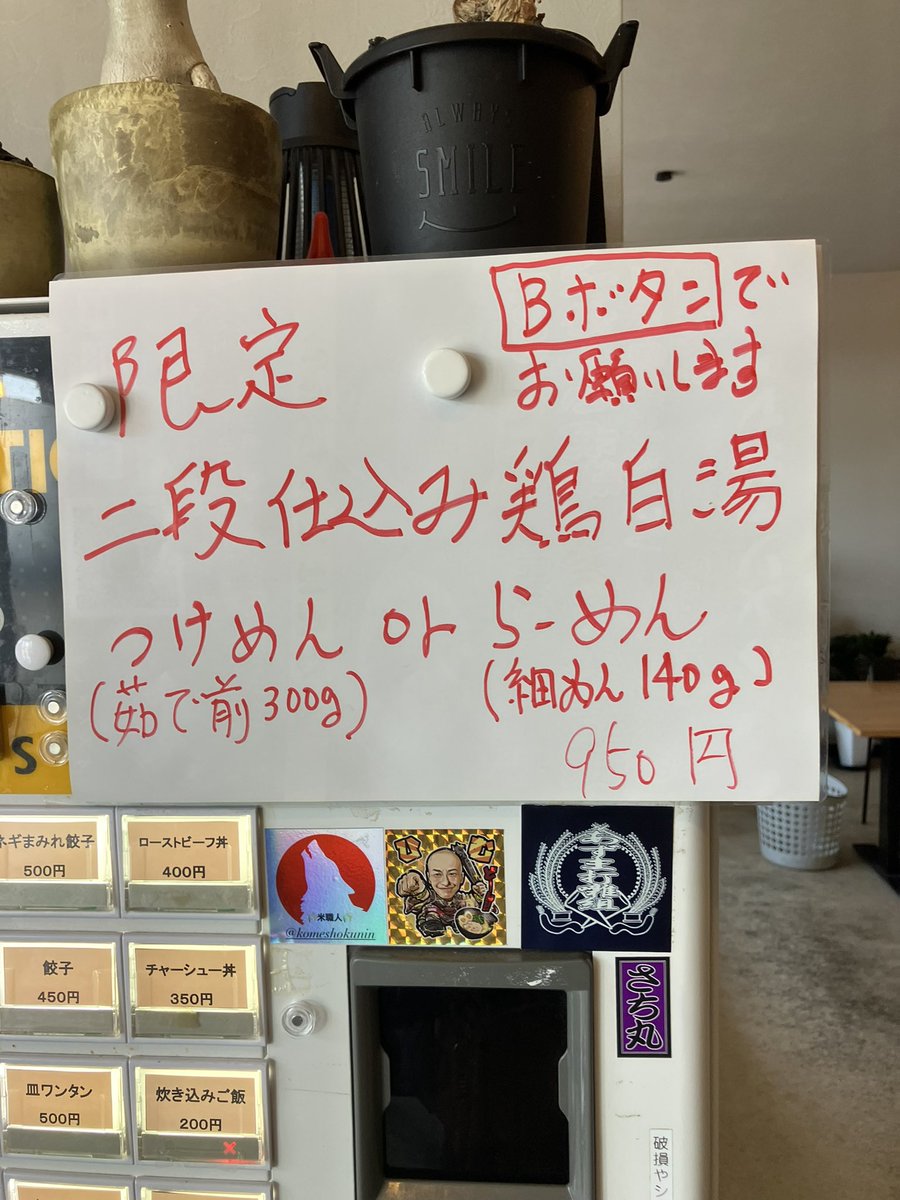 ALWAYS
SMILE
Bボタンで
お願いします
限定
二段仕込み鶏白湯
つけめん or らーめん
(茹で前300g) (細めん140g)
950円
S
ネギまみれ餃子
500円
ローストビーフ丼
400円
餃子
450円
チャーシュー丼
350円
皿ワンタン
500円
炊き込みご飯
200円
米職人
@komeshokunin
さち丸
破損やシ